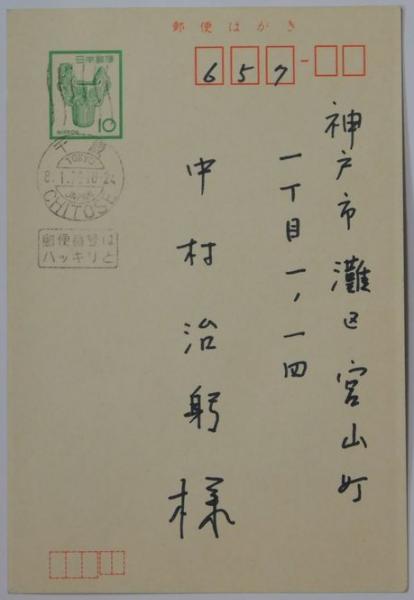 郵便はがき
日本郵便
10
NIPPON
657
千歳
TOKYO
JAPAN
CHITOSE
郵便番号は
ハッキリと
神戸市灘区宮山町
一丁目一、一四
中村治躬様